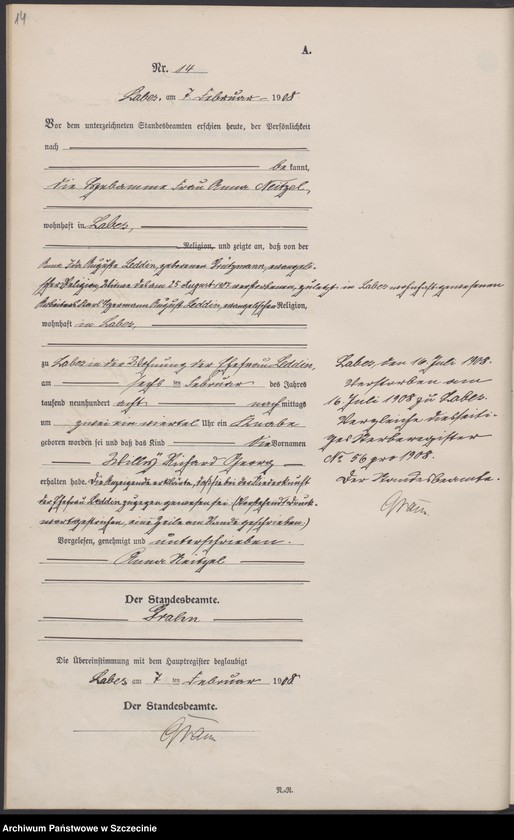 14
A.
Nr. 14
Labes, am 7 Februar 1908
Vor dem unterzeichneten Standesbeamten erschien heute, der Persönlichkeit
nach
bekannt,
die Hebamme Frau Anna Neitzel,
wohnhaft in Labes,
Religion, und zeigte an, daß von der
Auguste Leddin, geborenen Trützmann, evangeli-
scher Religion, des am 25 August verstorbenen, zuletzt in Labes wohnhaft gewesenen
Arbeiters Karl Hermann August Leddin, evangelischer Religion,
wohnhaft in Labes,
zu Labes in der Wohnung der Ehefrau Leddin,
am sechsten Februar des Jahres
tausend neunhundert acht nachmittags
um zwei ein viertel Uhr ein Knabe
geboren worden sei und daß das Kind die Vornamen
Willy Richard Georg
erhalten habe. Die Anzeigende erklärte, daß sie bei der Niederkunft
der Ehefrau Leddin zugegen gewesen sei. (Vorstehend 1 Druck-
wort gestrichen, eine Zeile am Rande geschrieben.)
Vorgelesen, genehmigt und unterschrieben.
Anna Neitzel
Der Standesbeamte.
Die Übereinstimmung mit dem Hauptregister beglaubigt
Labes am 7 ten Februar 1908
Der Standesbeamte.
Labes, den 16 Juli 1908.
Verstorben am
16 Juli 1908 zu Labes.
Vergleiche diesseiti-
ges Sterberegister
No 56 pro 1908.
Der Standesbeamte.
N.-R.
Archiwum Państwowe w Szczecinie